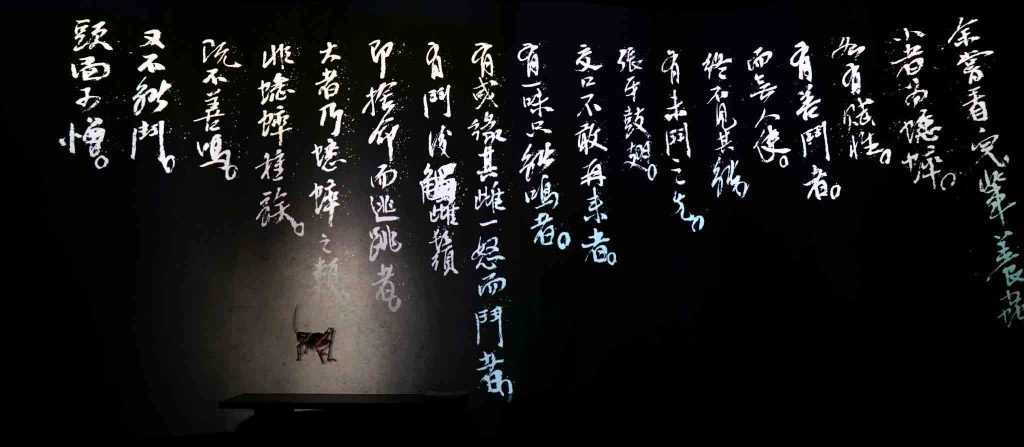 余嘗看輩養蛐
小者為蟋蟀。
有賦性。
有善鬥者。
而無人使。
終不見其能
有未鬥之先,
張牙鼓翅。
交口不敢再来者。
有一味只能鳴者。
有或緣其雌一怒而鬥者,
有鬥後觸雌鬚
即捨命而逃跳者。
大者乃蟋蟀之類。
蟋蟀種
既不善鳴。
又不能鬥。
頭面可憎。